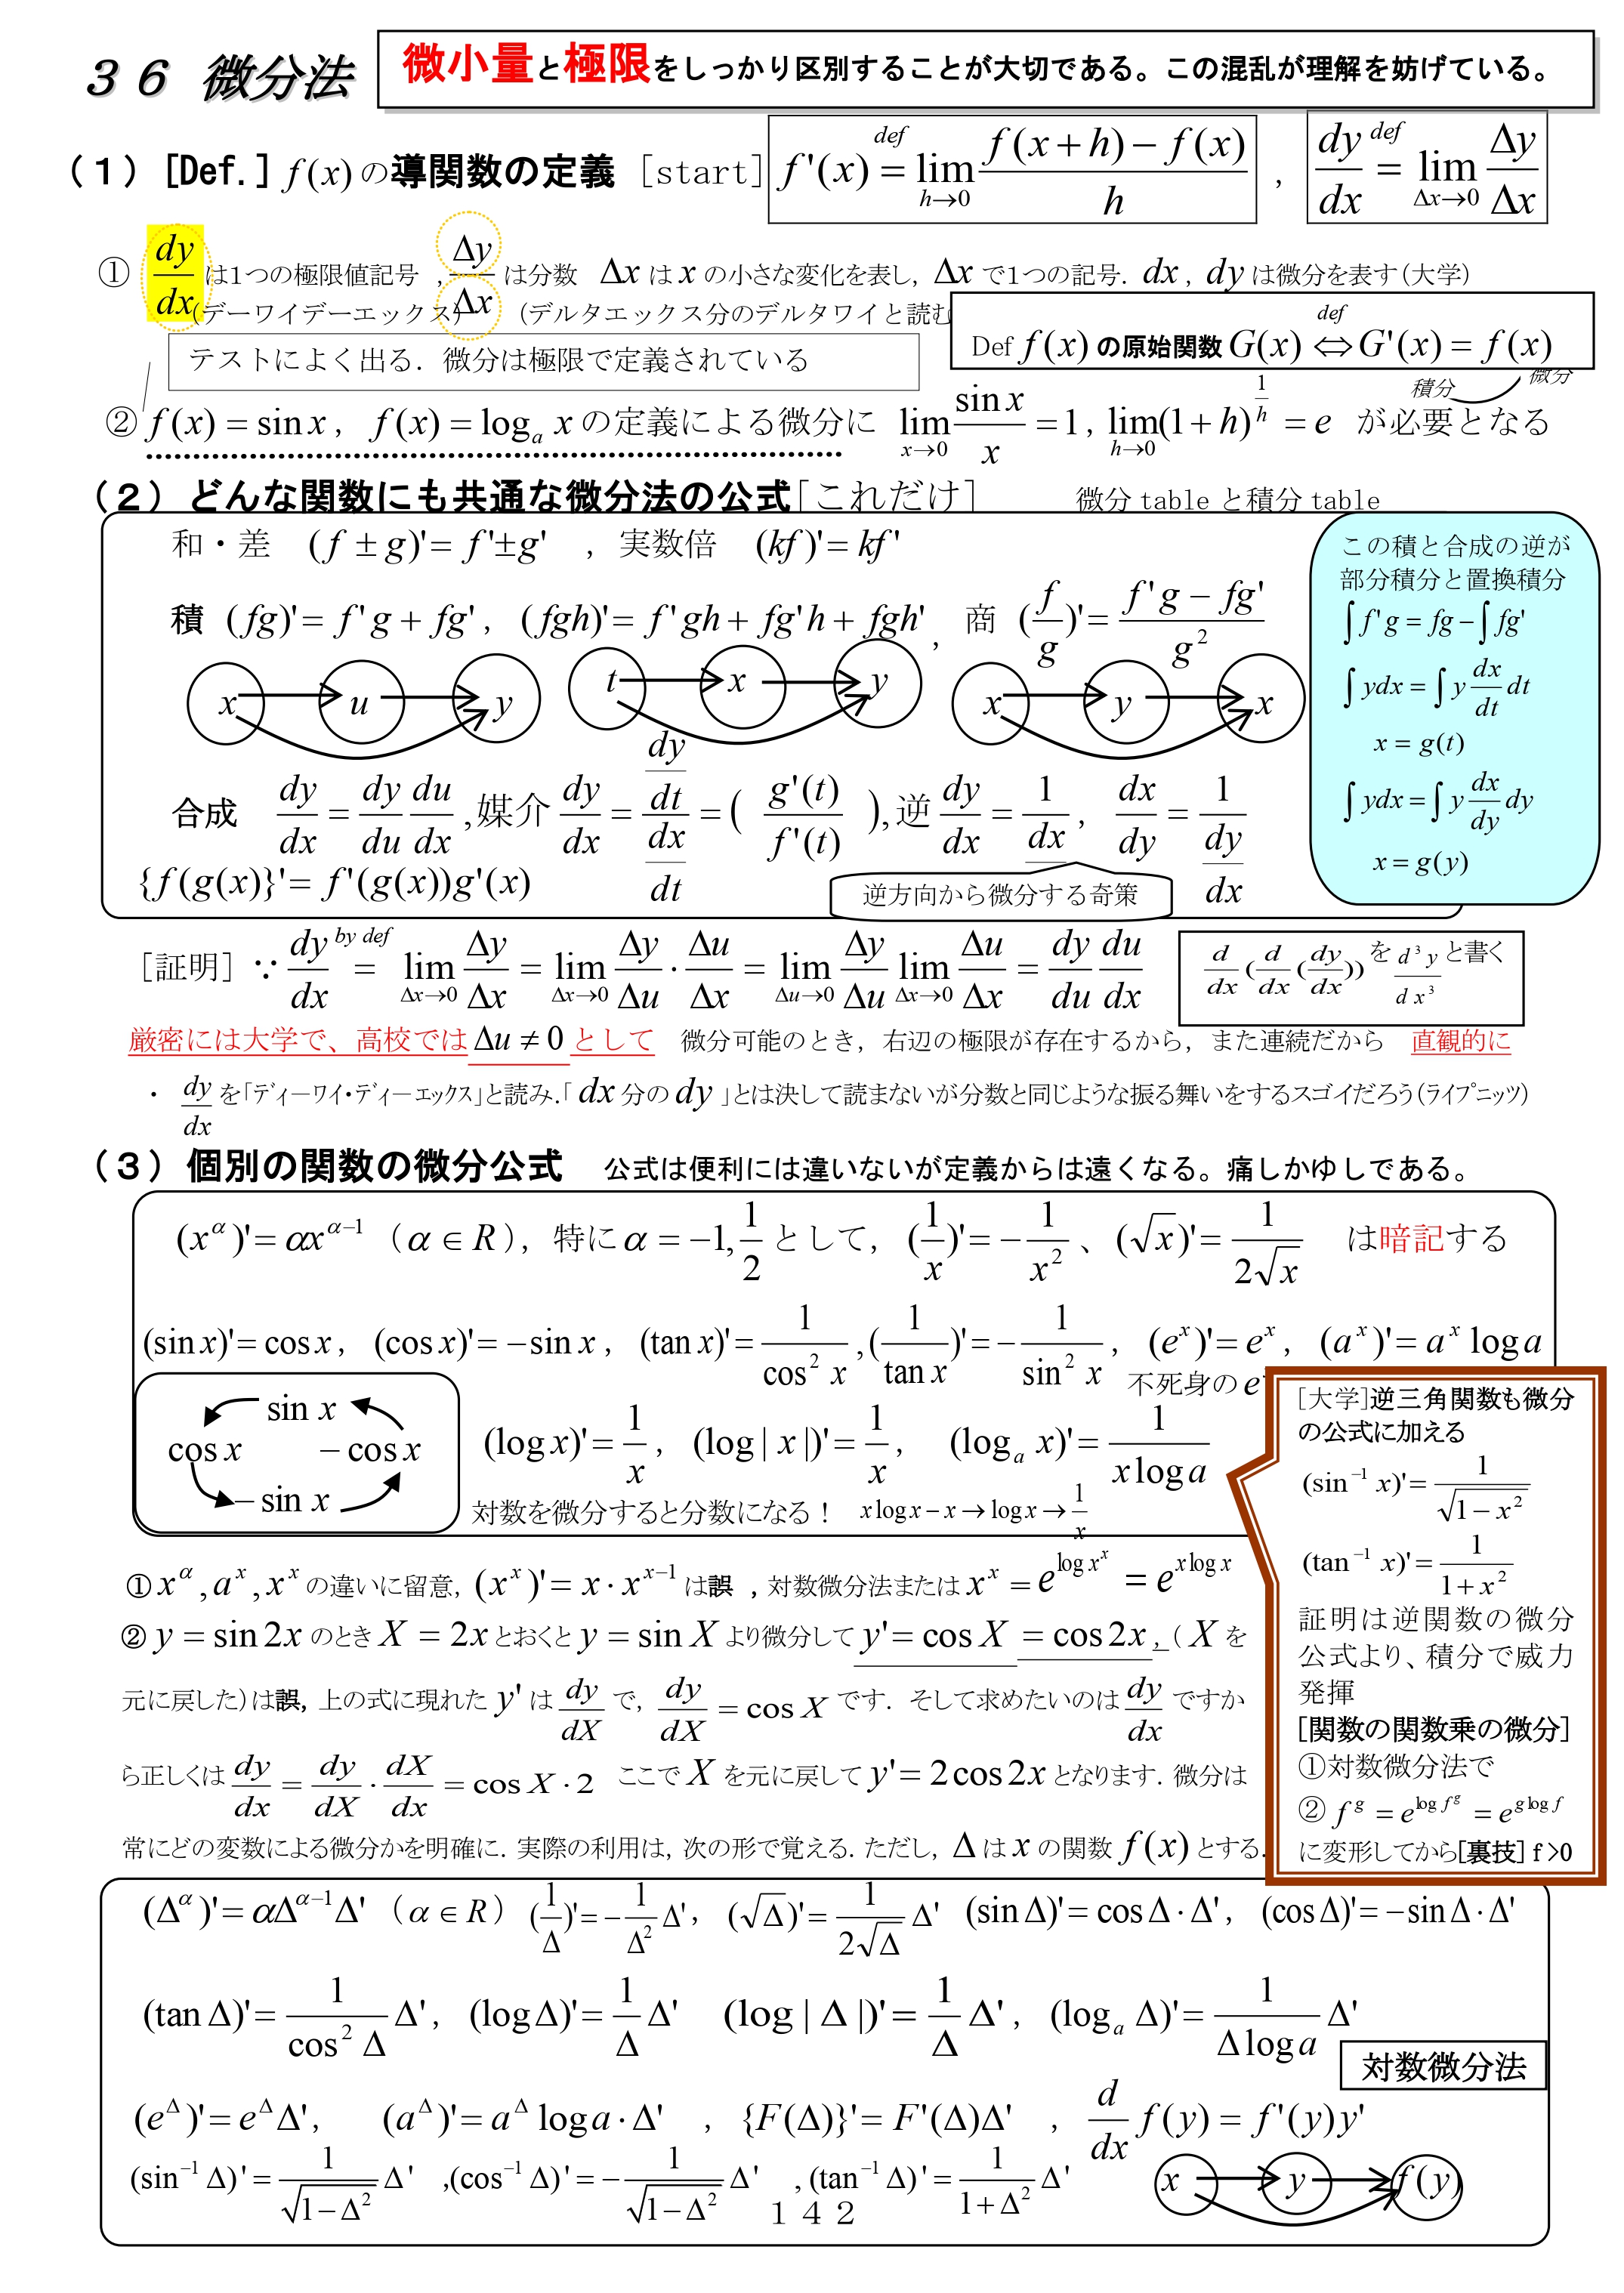 ３６ 微分法
微小量と極限をしっかり区別することが大切である。この混乱が理解を妨げている。
（１）[Def.] f(x)の導関数の定義 [start] f'(x) def= lim_{h→0} (f(x+h)−f(x))/h , dy/dx def= lim_{Δx→0} Δy/Δx
① dy/dx は1つの極限値記号 , Δy/Δx は分数 Δx は x の小さな変化を表し, Δx で1つの記号. dx , dy は微分を表す(大学)
(デーワイデーエックス) (デルタエックス分のデルタワイと読む
Def f(x) の原始関数 G(x) def⇔ G'(x) = f(x)
積分 微分
テストによく出る. 微分は極限で定義されている
② f(x) = sin x , f(x) = log_a x の定義による微分に lim_{x→0} sin x/x = 1 , lim_{h→0}(1+h)^{1/h} = e が必要となる
（２）どんな関数にも共通な微分法の公式[これだけ] 微分 table と積分 table
和・差 (f ± g)'= f'±g' , 実数倍 (kf)'= kf'
積 (fg)'= f'g + fg' , (fgh)'= f'gh + fg'h + fgh' , 商 (f/g)'= (f'g − fg')/g^2
x u y t x y x y x
合成 dy/dx = dy/du du/dx ,媒介 dy/dx = (dy/dt)/(dx/dt) = ( g'(t)/f'(t) ),逆 dy/dx = 1/(dx/ , dx/dy = 1/(dy/dx)
{f(g(x)}'= f'(g(x))g'(x)
逆方向から微分する奇策
この積と合成の逆が
部分積分と置換積分
∫f'g = fg −∫fg'
∫ydx = ∫y dx/dt dt
x = g(t)
∫ydx = ∫y dx/dy dy
x = g(y)
[証明] ∵ dy/dx by def= lim_{Δx→0} Δy/Δx = lim_{Δx→0} Δy/Δu · Δu/Δx = lim_{Δu→0} Δy/Δu lim_{Δx→0} Δu/Δx = dy/du du/dx
d/dx (d/dx (dy/dx)) を d^3y/dx^3 と書く
厳密には大学で、高校では Δu ≠ 0 として 微分可能のとき, 右辺の極限が存在するから, また連続だから 直観的に
・ dy/dx を「ディーワイ・ディーエックス」と読み.「 dx 分の dy 」とは決して読まないが分数と同じような振る舞いをするスゴイだろう(ライプニッツ)
（３）個別の関数の微分公式 公式は便利には違いないが定義からは遠くなる。痛しかゆしである。
(x^α)'= αx^{α−1} （α ∈ R）, 特に α = −1, 1/2 として, (1/x)'= −1/x^2 、(√x)'= 1/(2√x) は暗記する
(sin x)'= cos x , (cos x)'= −sin x , (tan x)'= 1/cos^2 x ,(1/tan x)'= −1/sin^2 x , (e^x)'= e^x , (a^x)'= a^x log a
不死身の e
sin x
cos x − cos x
− sin x
(log x)'= 1/x , (log | x |)'= 1/x , (log_a x)'= 1/(x log a)
対数を微分すると分数になる！ x log x − x → log x → 1/x
[大学]逆三角関数も微分
の公式に加える
(sin^{−1} x)'= 1/√(1−x^2)
(tan^{−1} x)'= 1/(1+x^2)
証明は逆関数の微分
公式より、積分で威力
発揮
[関数の関数乗の微分]
①対数微分法で
② f^g = e^{log f^g} = e^{g log f}
に変形してから[裏技] f >0
① x^α , a^x , x^x の違いに留意, (x^x)'= x · x^{x−1} は誤 , 対数微分法または x^x = e^{log x^x} = e^{x log x}
② y = sin 2x のとき X = 2x とおくと y = sin X より微分して y'= cos X = cos 2x , ( X を
元に戻した)は誤, 上の式に現れた y' は dy/dX で, dy/dX = cos X です. そして求めたいのは dy/dx ですか
ら正しくは dy/dx = dy/dX · dX/dx = cos X · 2 ここで X を元に戻して y'= 2 cos 2x となります. 微分は
常にどの変数による微分かを明確に. 実際の利用は, 次の形で覚える. ただし, Δ は x の関数 f(x) とする.
(Δ^α)'= αΔ^{α−1}Δ' （α ∈ R） (1/Δ)'= −1/Δ^2 Δ' , (√Δ)'= 1/(2√Δ) Δ' (sin Δ)'= cos Δ · Δ' , (cos Δ)'= −sin Δ · Δ'
(tan Δ)'= 1/cos^2 Δ Δ' , (log Δ)'= 1/Δ Δ' (log | Δ |)'= 1/Δ Δ' , (log_a Δ)'= 1/(Δ log a) Δ'
対数微分法
(e^Δ)'= e^Δ Δ' , (a^Δ)'= a^Δ log a · Δ' , {F(Δ)}'= F'(Δ)Δ' , d/dx f(y) = f'(y)y'
(sin^{−1} Δ)'= 1/√(1−Δ^2) Δ' ,(cos^{−1} Δ)'= −1/√(1−Δ^2) Δ' ,(tan^{−1} Δ)'= 1/(1+Δ^2) Δ'
x y f(y)
１４２